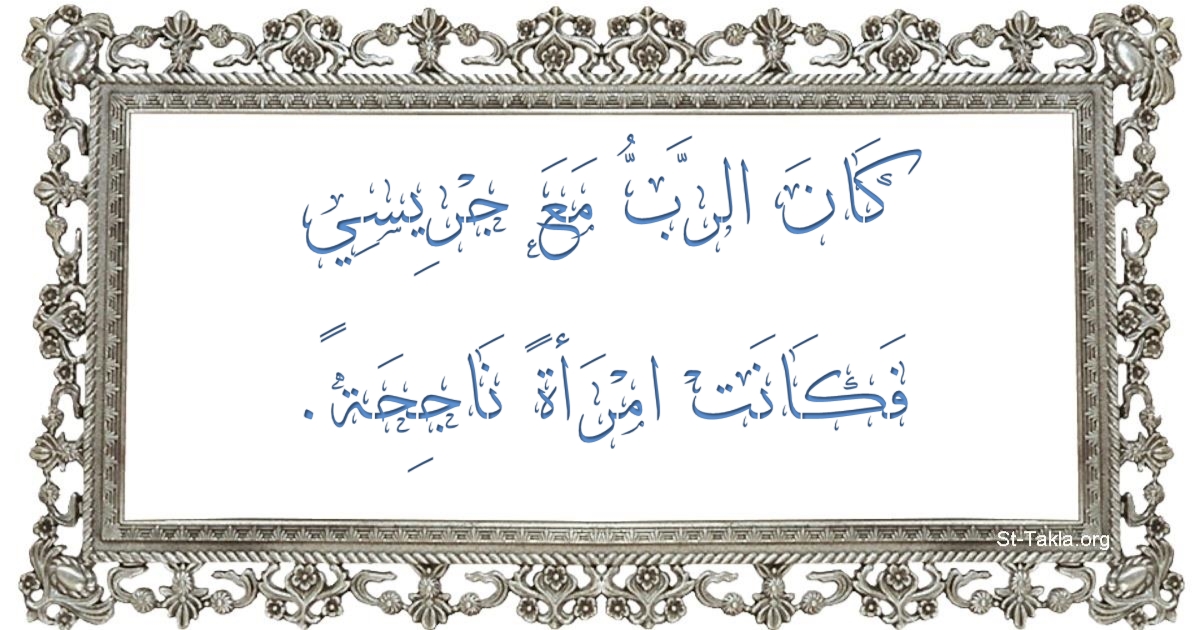 كَانَ الرَّبُّ مَعَ جْرِيسِي
فَكَانَت امْرَأةً نَاجِحَةً.
St-Takla.org